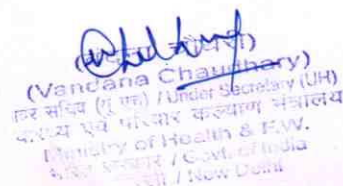 (Vandana Chaudhary)
सचिव (यू एच) / Under Secretary (UH)
एवं परिवार कल्याण मंत्रालय
Ministry of Health & F.W.
भारत सरकार / Govt. of India
/ New Delhi